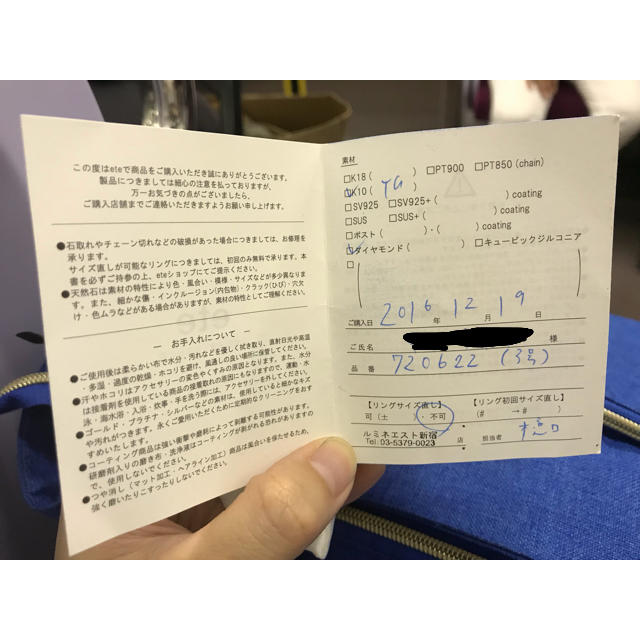 この度はeteで商品をご購入いただき誠にありがとうございます。
製品につきましては細心の注意を払っておりますが、
万一お気づきの点がございましたら、
ご購入店舗までご連絡いただきますようお願い申し上げます。
●石取れやチェーン切れなどの破損があった場合につきましては、お修理を
承ります。
サイズ直しが可能なリングにつきましては、初回のみ無料で承ります。本
書を必ずご持参の上、eteショップにてご提示ください。
●天然石は素材の特性により色・風合い・模様・サイズなどが多少異なりま
す。また、細かな傷・インクルージョン(内包物)・クラック(ひび)・穴欠
け・色ムラなどがある場合がありますが、素材の特性としてご理解ください。
― お手入れについて ―
●ご使用後は柔らかい布で水分・汚れなどを優しく拭き取り、直射日光や高温
・多湿・過度の乾燥・ホコリを避け、風通しの良い場所に保管してください。
●汗やホコリはアクセサリーの変色やくすみの原因となります。また、水分
は接着剤を使用している商品の接着取れの原因にもなりますので、運動・水
泳・海水浴・入浴・炊事・手を洗う際には、アクセサリーを外してください。
●ゴールド・プラチナ・シルバーなどの素材は、使用していると細かなキズ
や汚れがつきます。永くご愛用いただくために定期的なクリーニングをおす
すめいたします。
●コーティング商品は強い衝撃や磨耗によって剥離する可能性があります。
研磨剤入りの磨き布・洗浄液はコーティングが剥がれる恐れがありますの
で、使用しないでください。
●つや消し(マット加工・ヘアライン加工)商品は風合いを保たせるため、
強く磨いたりこすったりしないでください。
素材
□K18( ) □PT900 □PT850(chain)
□K10( YG )
□SV925 □SV925+( ) coating
□SUS □SUS+( ) coating
□ポスト( )・( ) coating
□ダイヤモンド( ) □キュービックジルコニア
□
ご購入日 2016 年 12 月 19 日
ご氏名 様
品番 720622 (3号)
【リングサイズ直し】 【リング初回サイズ直し】
可(± )・不可 (# →# )
ルミネエスト新宿 店 担当者
Tel:03-5379-0023